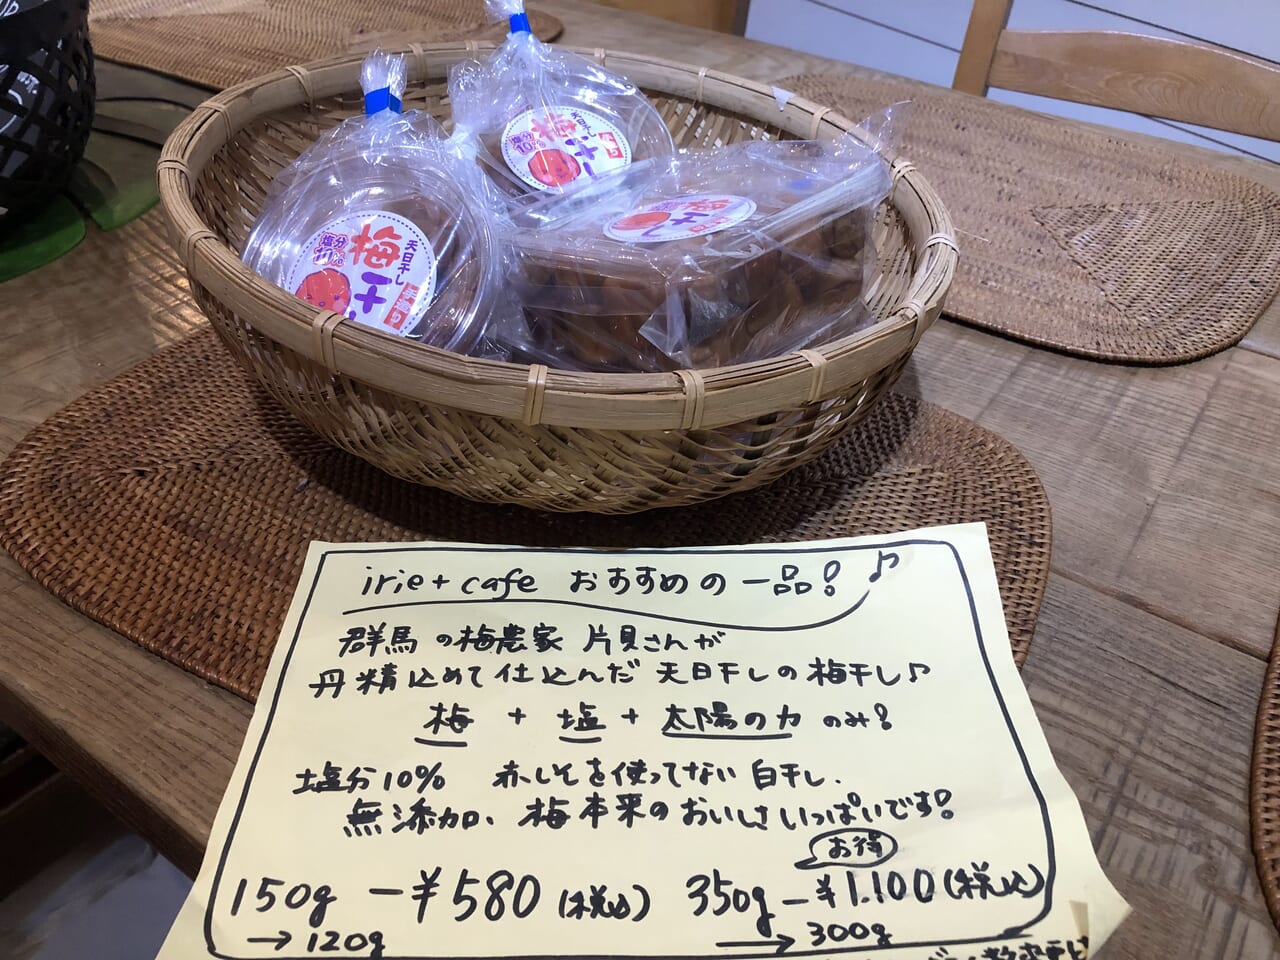 天日干し
塩分
10%
梅干し
手造り
天日干し
塩分
10%
梅干
手造り
梅干し
irie+cafe おすすめの一品!♪
群馬の梅農家 片貝さんが
丹精込めて仕込んだ 天日干しの梅干し♪
梅 + 塩 + 太陽の力 のみ!
塩分10% 赤しそを使ってない 白干し.
無添加、梅本来のおいしさいっぱいです!
お得
150g -¥580 (税込) 350g-¥1.100(税込)
→120g →300g